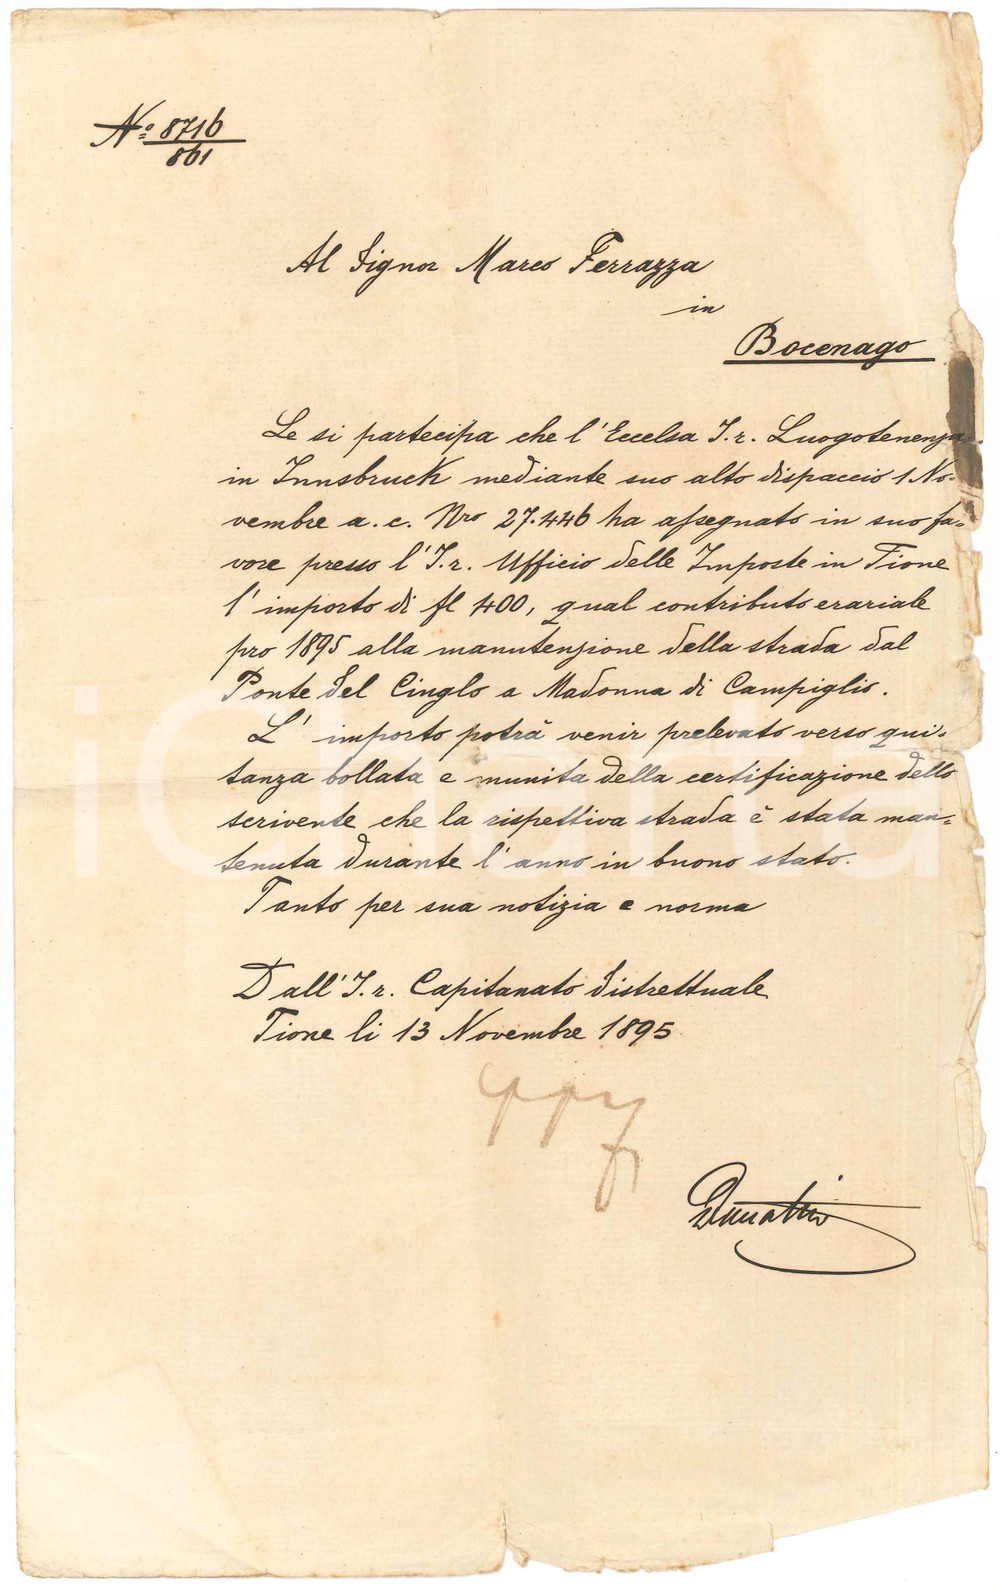 No. 8716
861
Al Signor Marco Ferrazza
in
Bocenago
Le si partecipa che l'Eccelsa I. r. Luogotenenza
in Innsbruck mediante suo alto dispaccio 1 No-
vembre a. c. Nro 27.446 ha assegnato in suo fa-
vore presso l'I. r. Ufficio delle Imposte in Tione
l'importo di fl 400, qual contributo erariale
pro 1895 alla manutenzione della strada dal
Ponte del Cinglo a Madonna di Campiglio.
L'importo potrà venir prelevato verso qui-
tanza bollata e munita della certificazione dello
scrivente che la rispettiva strada è stata man-
tenuta durante l'anno in buono stato.
Tanto per sua notizia e norma
Dall'I. r. Capitanato distrettuale
Tione li 13 Novembre 1895